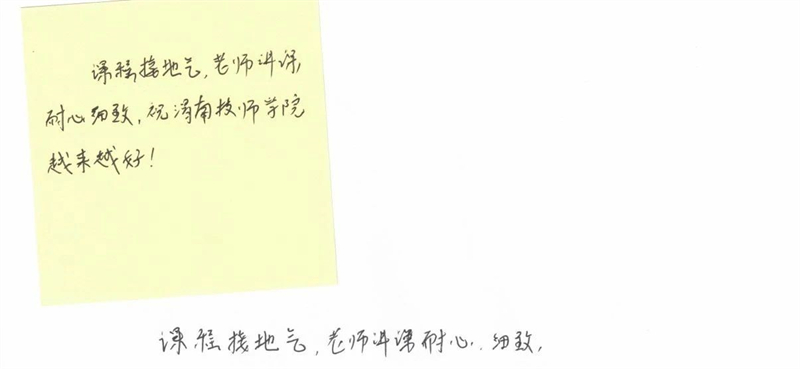 课程接地气,老师讲课,
耐心细致,祝渭南技师学院
越来越好!
课程接地气,老师讲课耐心、细致,